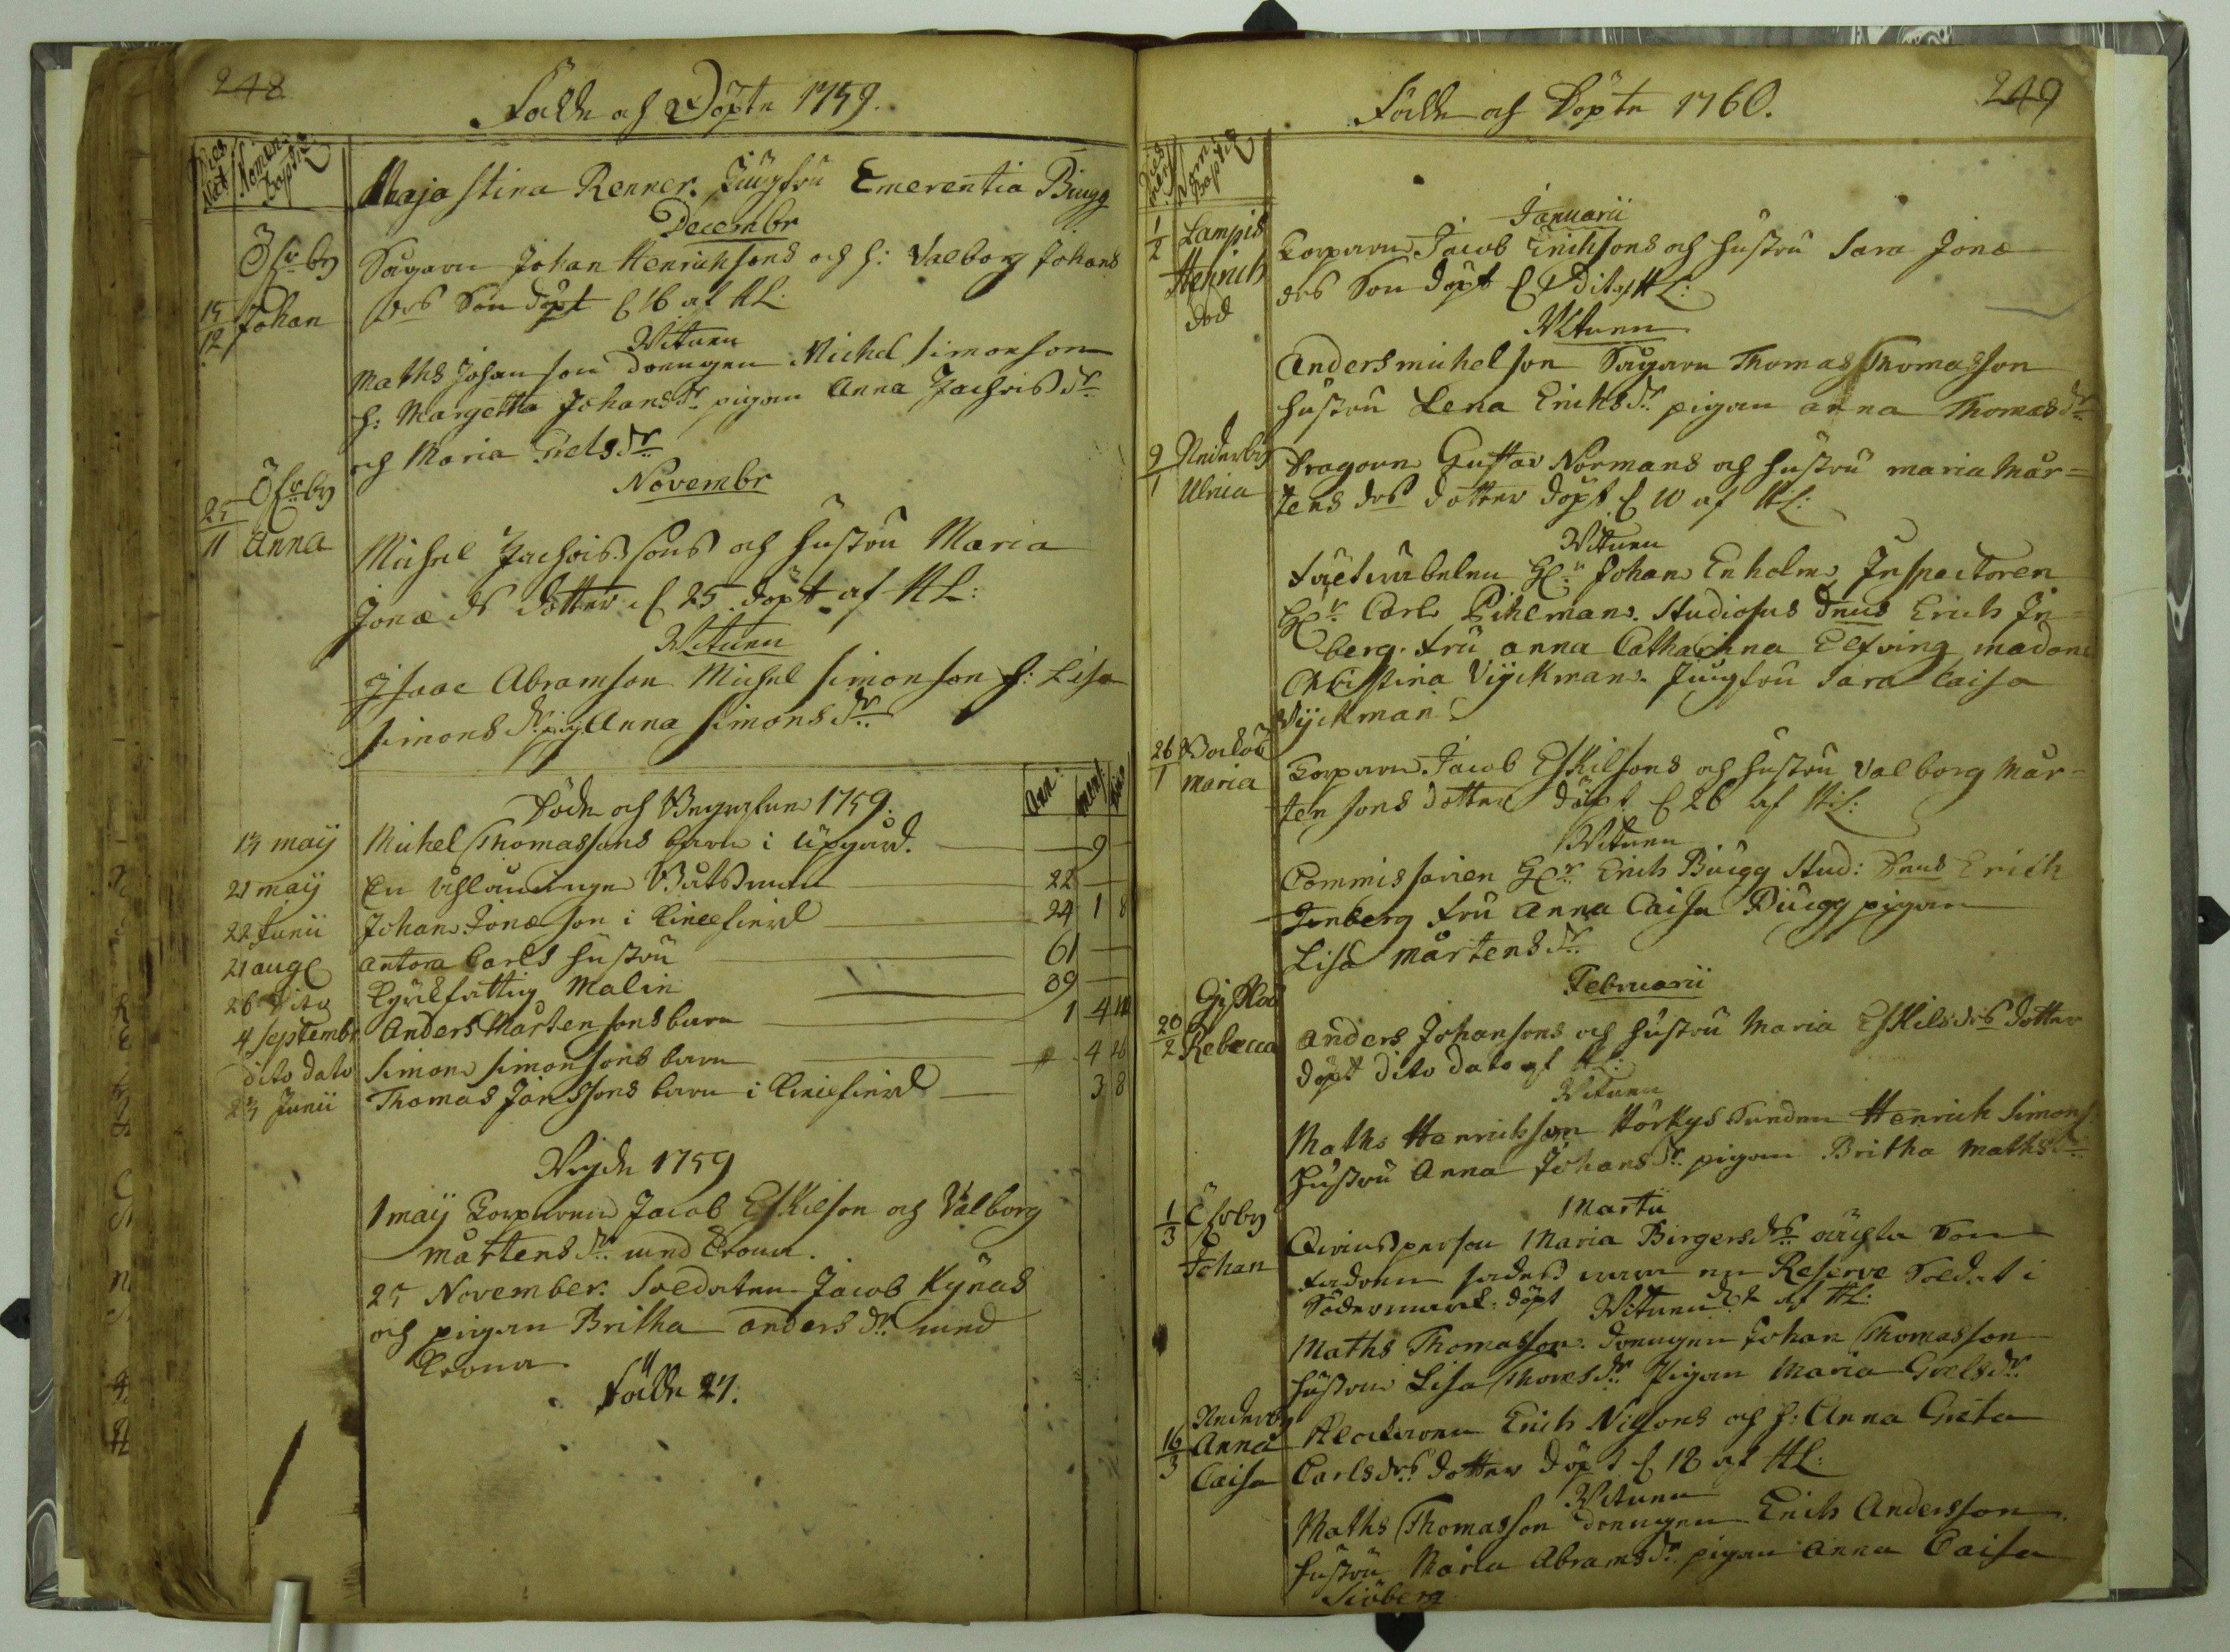 248
Födde och Döpte 1759.
Dies Nat Nomen Baptiz
Maja Stina Renner. Jungfru Emerentia Biugg
Decembr
Öfv:by Sågaren Johan Henrichsons och h: Valborg Johans
15/12 Johan drs Son döpt d 16 af HL:
Witnen
Maths Johansson drengen Michel Simonson
h: Margetha Johansdr. pigan Anna Zachrisdr
och Maria Grelsdr
Novembr
Öfv:by
25/11 Anna Michel Zachrissons och hustru Maria
Jonæ dr dotter d 25 döpt af HL:
Witnen
Isaac Abramson Michel Simonson h: Lisa
Simonsdr. pig. Anna Simonsdr
Döde och Begrafne 1759. Ann: Mens: Dies
13 maij Michel Thomassons barn i Upgård. 9
21 maij En Båtsman 22
22 Junii Johan Jonæson i 24 1 8
21 aug Antora Carls hustru 61
26 Dito Malin 89
4 Septembr Anders Mårtensons barn 1 4 14
dito dato Simon Simonsons barn 4 26
23 Junii Thomas Jonssons barn i 3 8
Wigde 1759
1 maij Torparen Jacob Eskilson och Valborg
Mårtensdr. med Crona.
25 November. Soldaten Jacob Kynäs
och pigan Britha Andersdr. med
Crona
Födde 27.
Födde och Döpte 1760. 249
Dies mens Nomen Baptiz
Januarii
1/2 Lampis Torparen Jacob Erichsons och hustru Sara Jonæ
Henrich drs Son döpt d dito af HL:
död
Witnen
Anders Michelson Sågaren Thomas Thomasson
hustru Lena Erichsdr. pigan Anna Thomasdr
9/1 Nederby Dragoun Gustav Normans och hustru Maria Mår=
Ulrica tens drs dotter döpt d 10 af HL:
Witnen
Fältväbelen Hr Johan Enholm Inspectoren
Hr Carl Pihlman. Studiosus Dnus Erich In=
berg. Fru Anna Catharina Elfving madam
Christina Vijckman. Jungfru Sara Caisa
Wijckman
26/1 Torparen Jacob Eskilsons och hustru Valborg Mår=
Maria tensons dotter döpt d 26 af HL:
Witnen
Commissarien Hr Erich Biugg Stud: Dnus Erich
Inberg Fru Anna Caisa Biugg pigan
Lisa Mårtensdr
Februarii
20/2 Anders Johansons och hustru Maria Eskilsdrs dotter
Rebecca döpt dito dato af HL:
Witnen
Maths Henrichson Henrich Simons
hustru Anna Johansdr. pigan Britha Mathsdr
Martii
1/3 Öfv:by Maria Birgersdrs oächta Son
Johan fadren sades vara en Reserve Soldat i
Södermark. döpt d 2 af HL:
Witnen
Maths Thomasson. drengen Johan Thomasson
hustru Lisa Thomsdr. Pigan Maria Grelsdr
Nederby
16/3 Anna Klockaren Erich Nilsons och h: Anna Greta
Caisa Carlsdrs dotter döpt d 18 af HL:
Witnen
Maths Thomasson drengen Erich Andersson
hustru Maria Abramsdr. pigan Anna Caisa
Siöberg